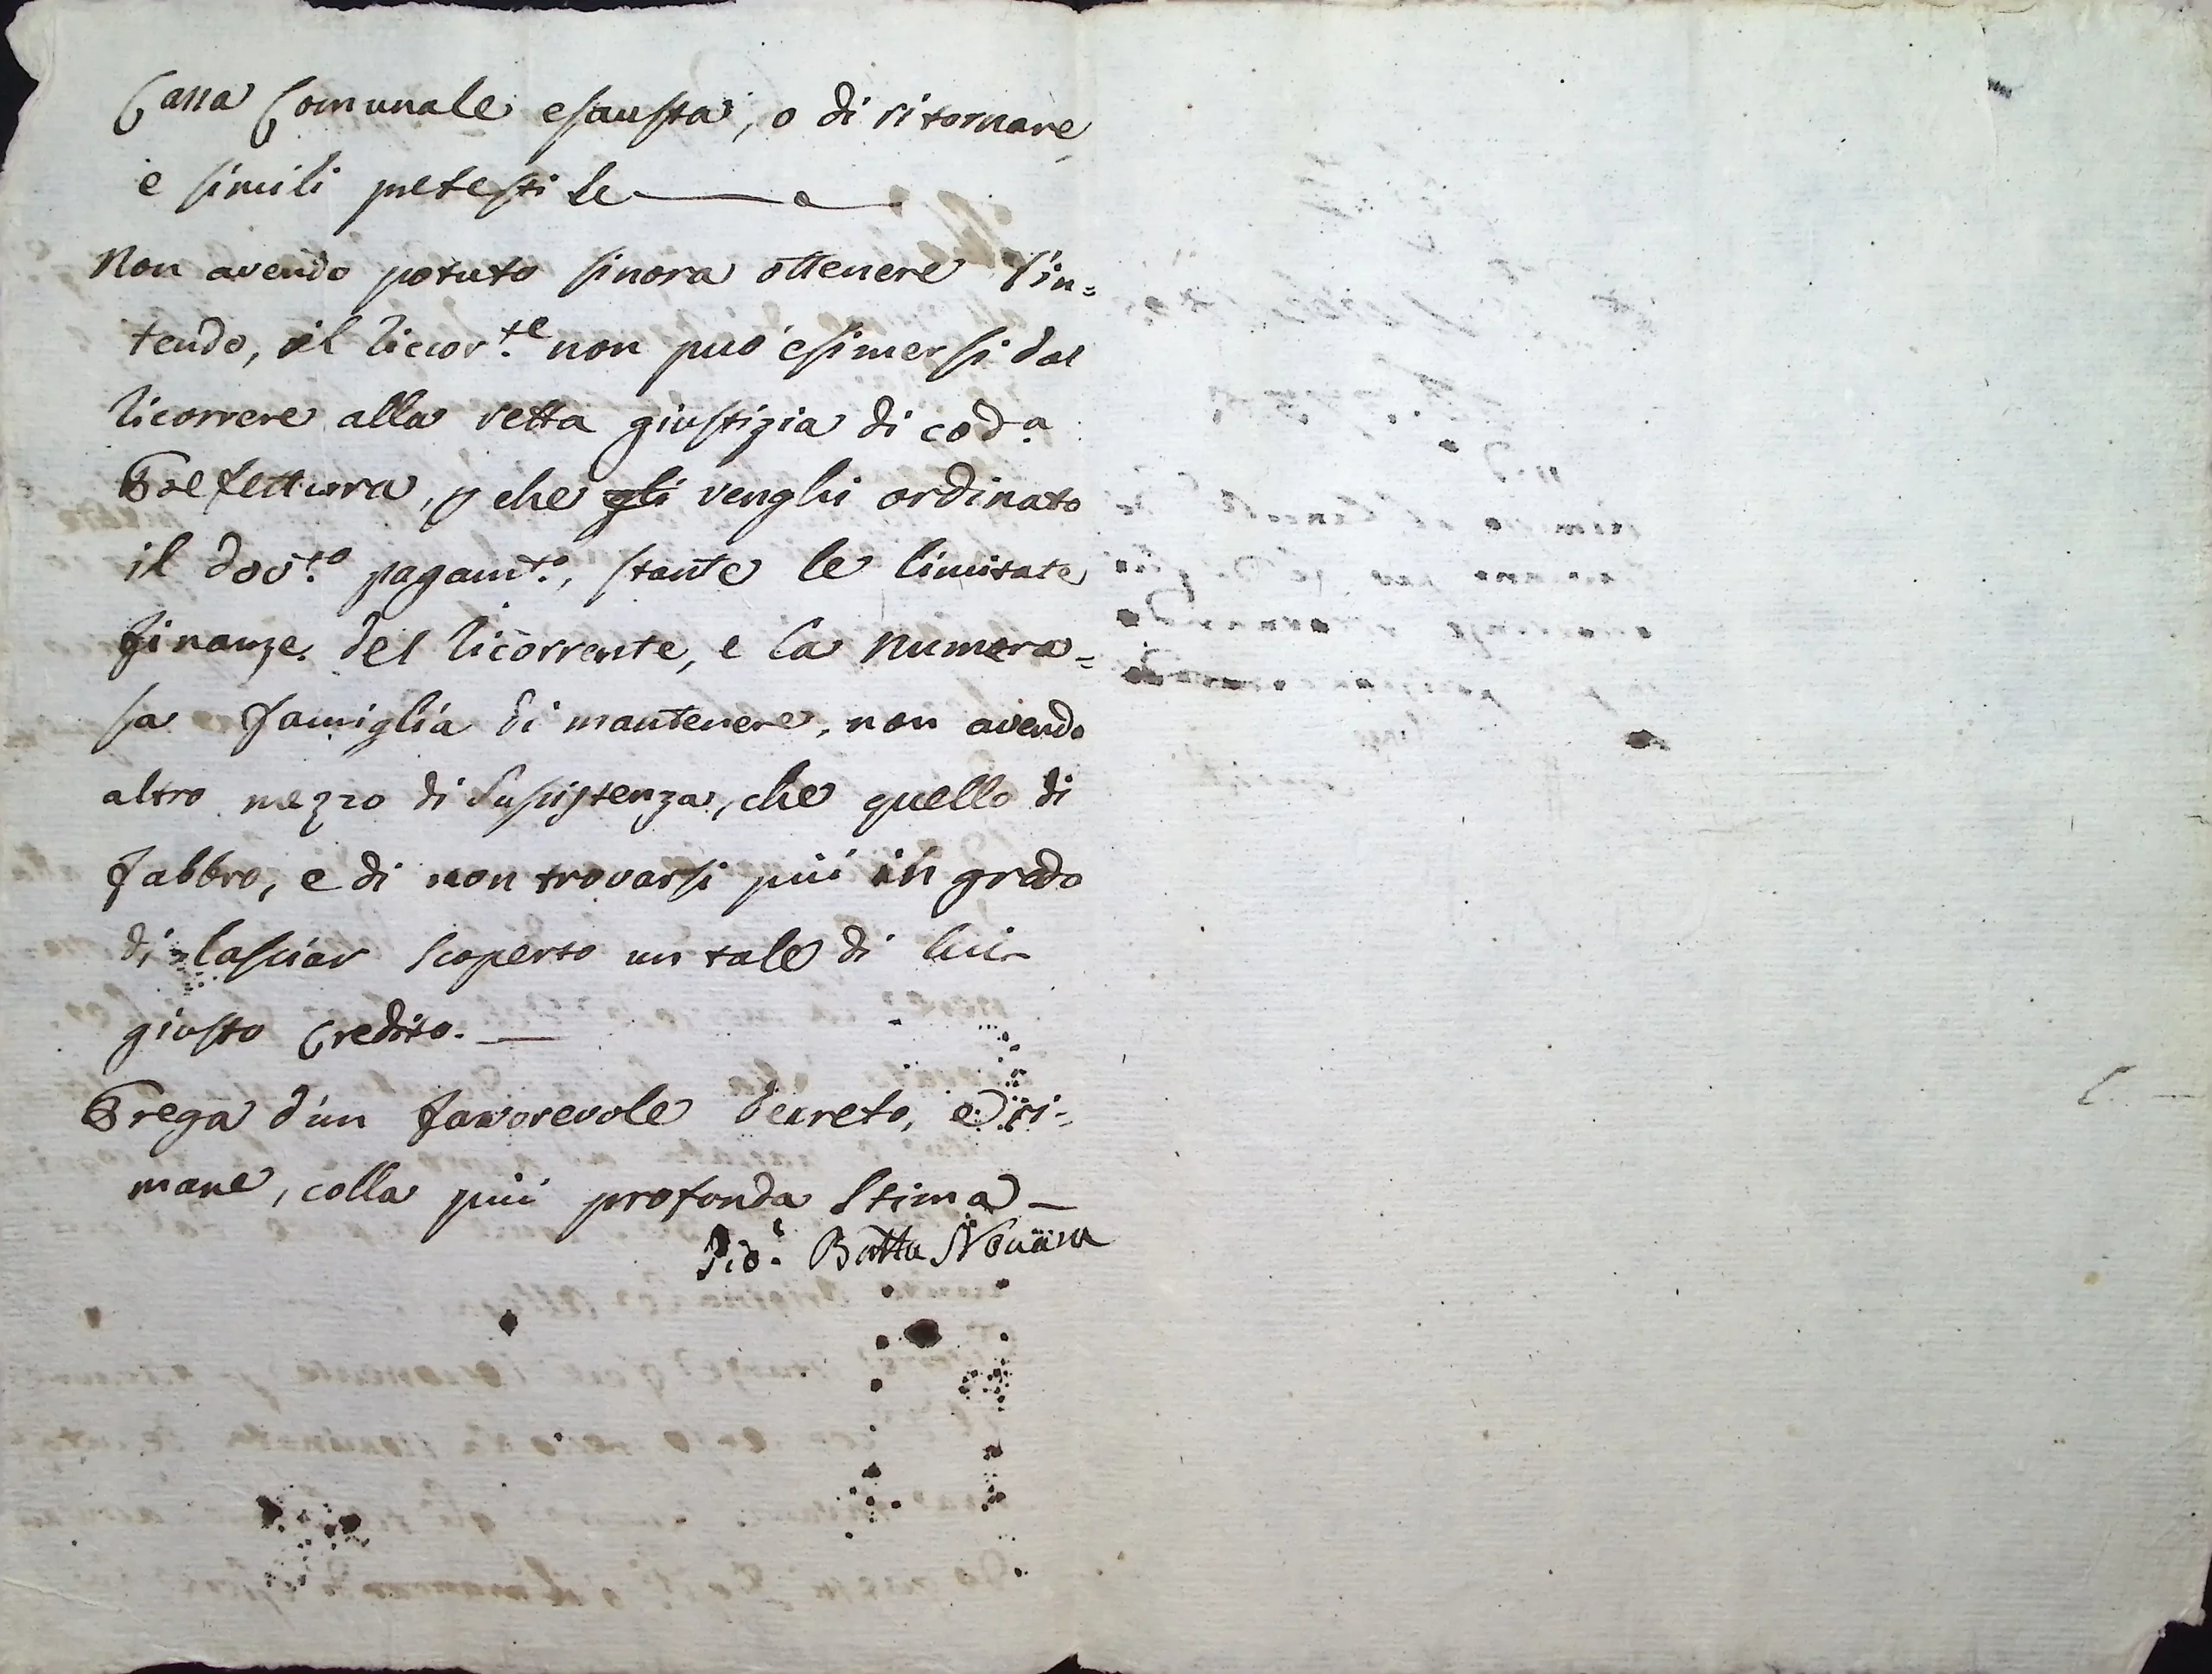 Cassa Comunale esausta, o di ritornare
e simili pretesti &c
Non avendo potuto sinora ottenere l'in=
tendo, il Riccor.te non può esimersi dal
Ricorrere alla retta giustizia di cod.a
Prefettura, p che gli venghi ordinato
il dov.to pagam.to, stante le limitate
finanze del Ricorrente, e la numero=
sa famiglia di mantenere, non avendo
altro mezzo di Susistenza, che quello di
fabbro, e di non trovarsi più in grado
di lasciar scoperto un tale di lui
giusto Credito. —
Prega d'un favorevole decreto, e ri=
mane, colla più profonda Stima —
Gio. Batta